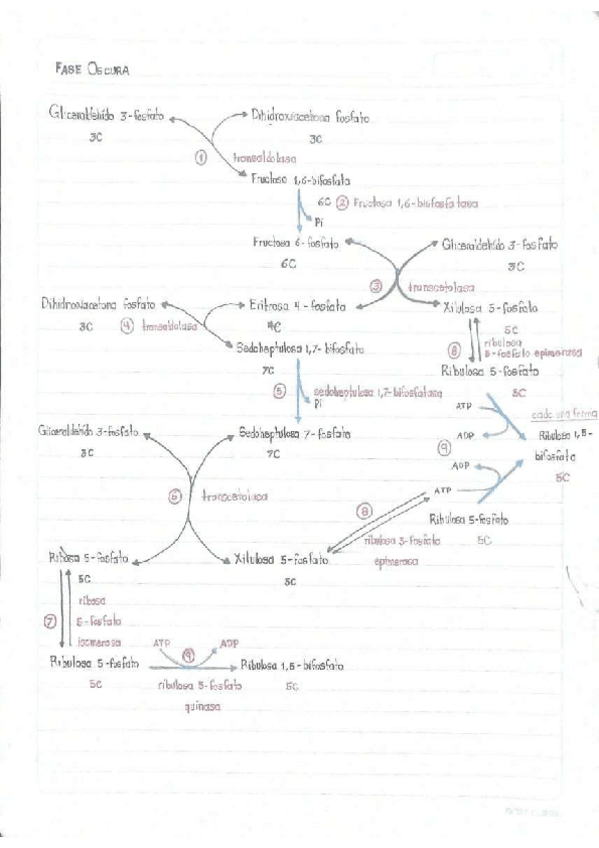 FASE OSCURA
Gliceraldehído 3-fosfato
Dihidroxiacetona fosfato
3C
3C
① transaldolasa
Fructosa 1,6-bifosfato
6C ② Fructosa 1,6-bisfosfatasa
Pi
Fructosa 6-fosfato
Gliceraldehído 3-fosfato
6C
3C
③ transcetolasa
Dihidroxiacetona fosfato
Eritrosa 4-fosfato
Xilulosa 5-fosfato
3C
④ transaldolasa
4C
5C
Sedoheptulosa 1,7-bifosfato
⑧ ribulosa 5-fosfato epimerasa
7C
Ribulosa 5-fosfato
⑤ sedoheptulosa 1,7-bifosfatasa
5C
Pi
ATP
cada una forma
Gliceraldehído 3-fosfato
Sedoheptulosa 7-fosfato
ADP
Ribulosa 1,5-
3C
7C
⑨
bifosfato
ADP
5C
⑥ transcetolasa
ATP
⑧
Ribulosa 5-fosfato
ribulosa 5-fosfato
5C
Ribosa 5-fosfato
Xilulosa 5-fosfato
epimerasa
5C
5C
ribosa
⑦ 5-fosfato
isomerasa
ATP
⑨
ADP
Ribulosa 5-fosfato
Ribulosa 1,5-bifosfato
5C
ribulosa 5-fosfato
5C
quinasa